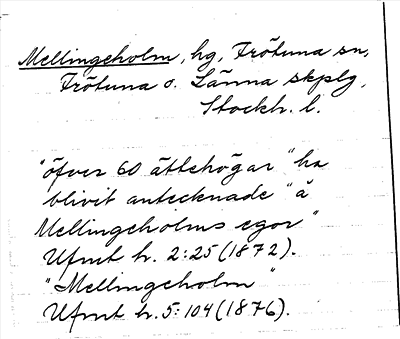 Mellingeholm, hg, Frötuna sn,
Frötuna o. Länna skplg,
Stockh. l.
"öfver 60 ättehögar" ha
blivit antecknade "å
Mellingeholms egor"
Ufmt h. 2:25 (1872).
"Mellingeholm"
Ufmt h. 5:104 (1876).